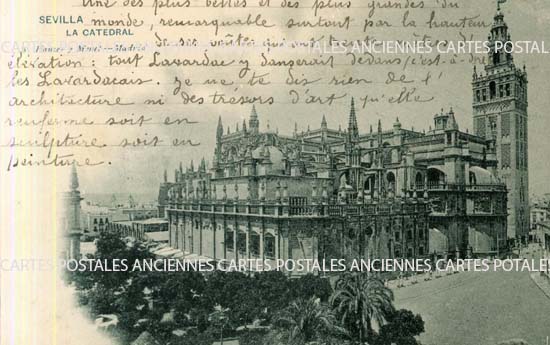 une des plus belles et des plus grandes du
SEVILLA
LA CATEDRAL
Hauser y Menet.-Madrid
monde, remarquable surtout par la hauteur
de ses voûtes qui ont
élévation : tout Lavardac y danserait dedans c'est-à-dire
les Lavardacais. Je ne te dis rien de l'
architecture ni des trésors d'art qu'elle
renferme soit en
sculpture soit en
peinture.
CARTES POSTALES ANCIENNES CARTES POSTALES ANCIENNES CARTES POSTALES ANCIENNES CARTES POSTALES